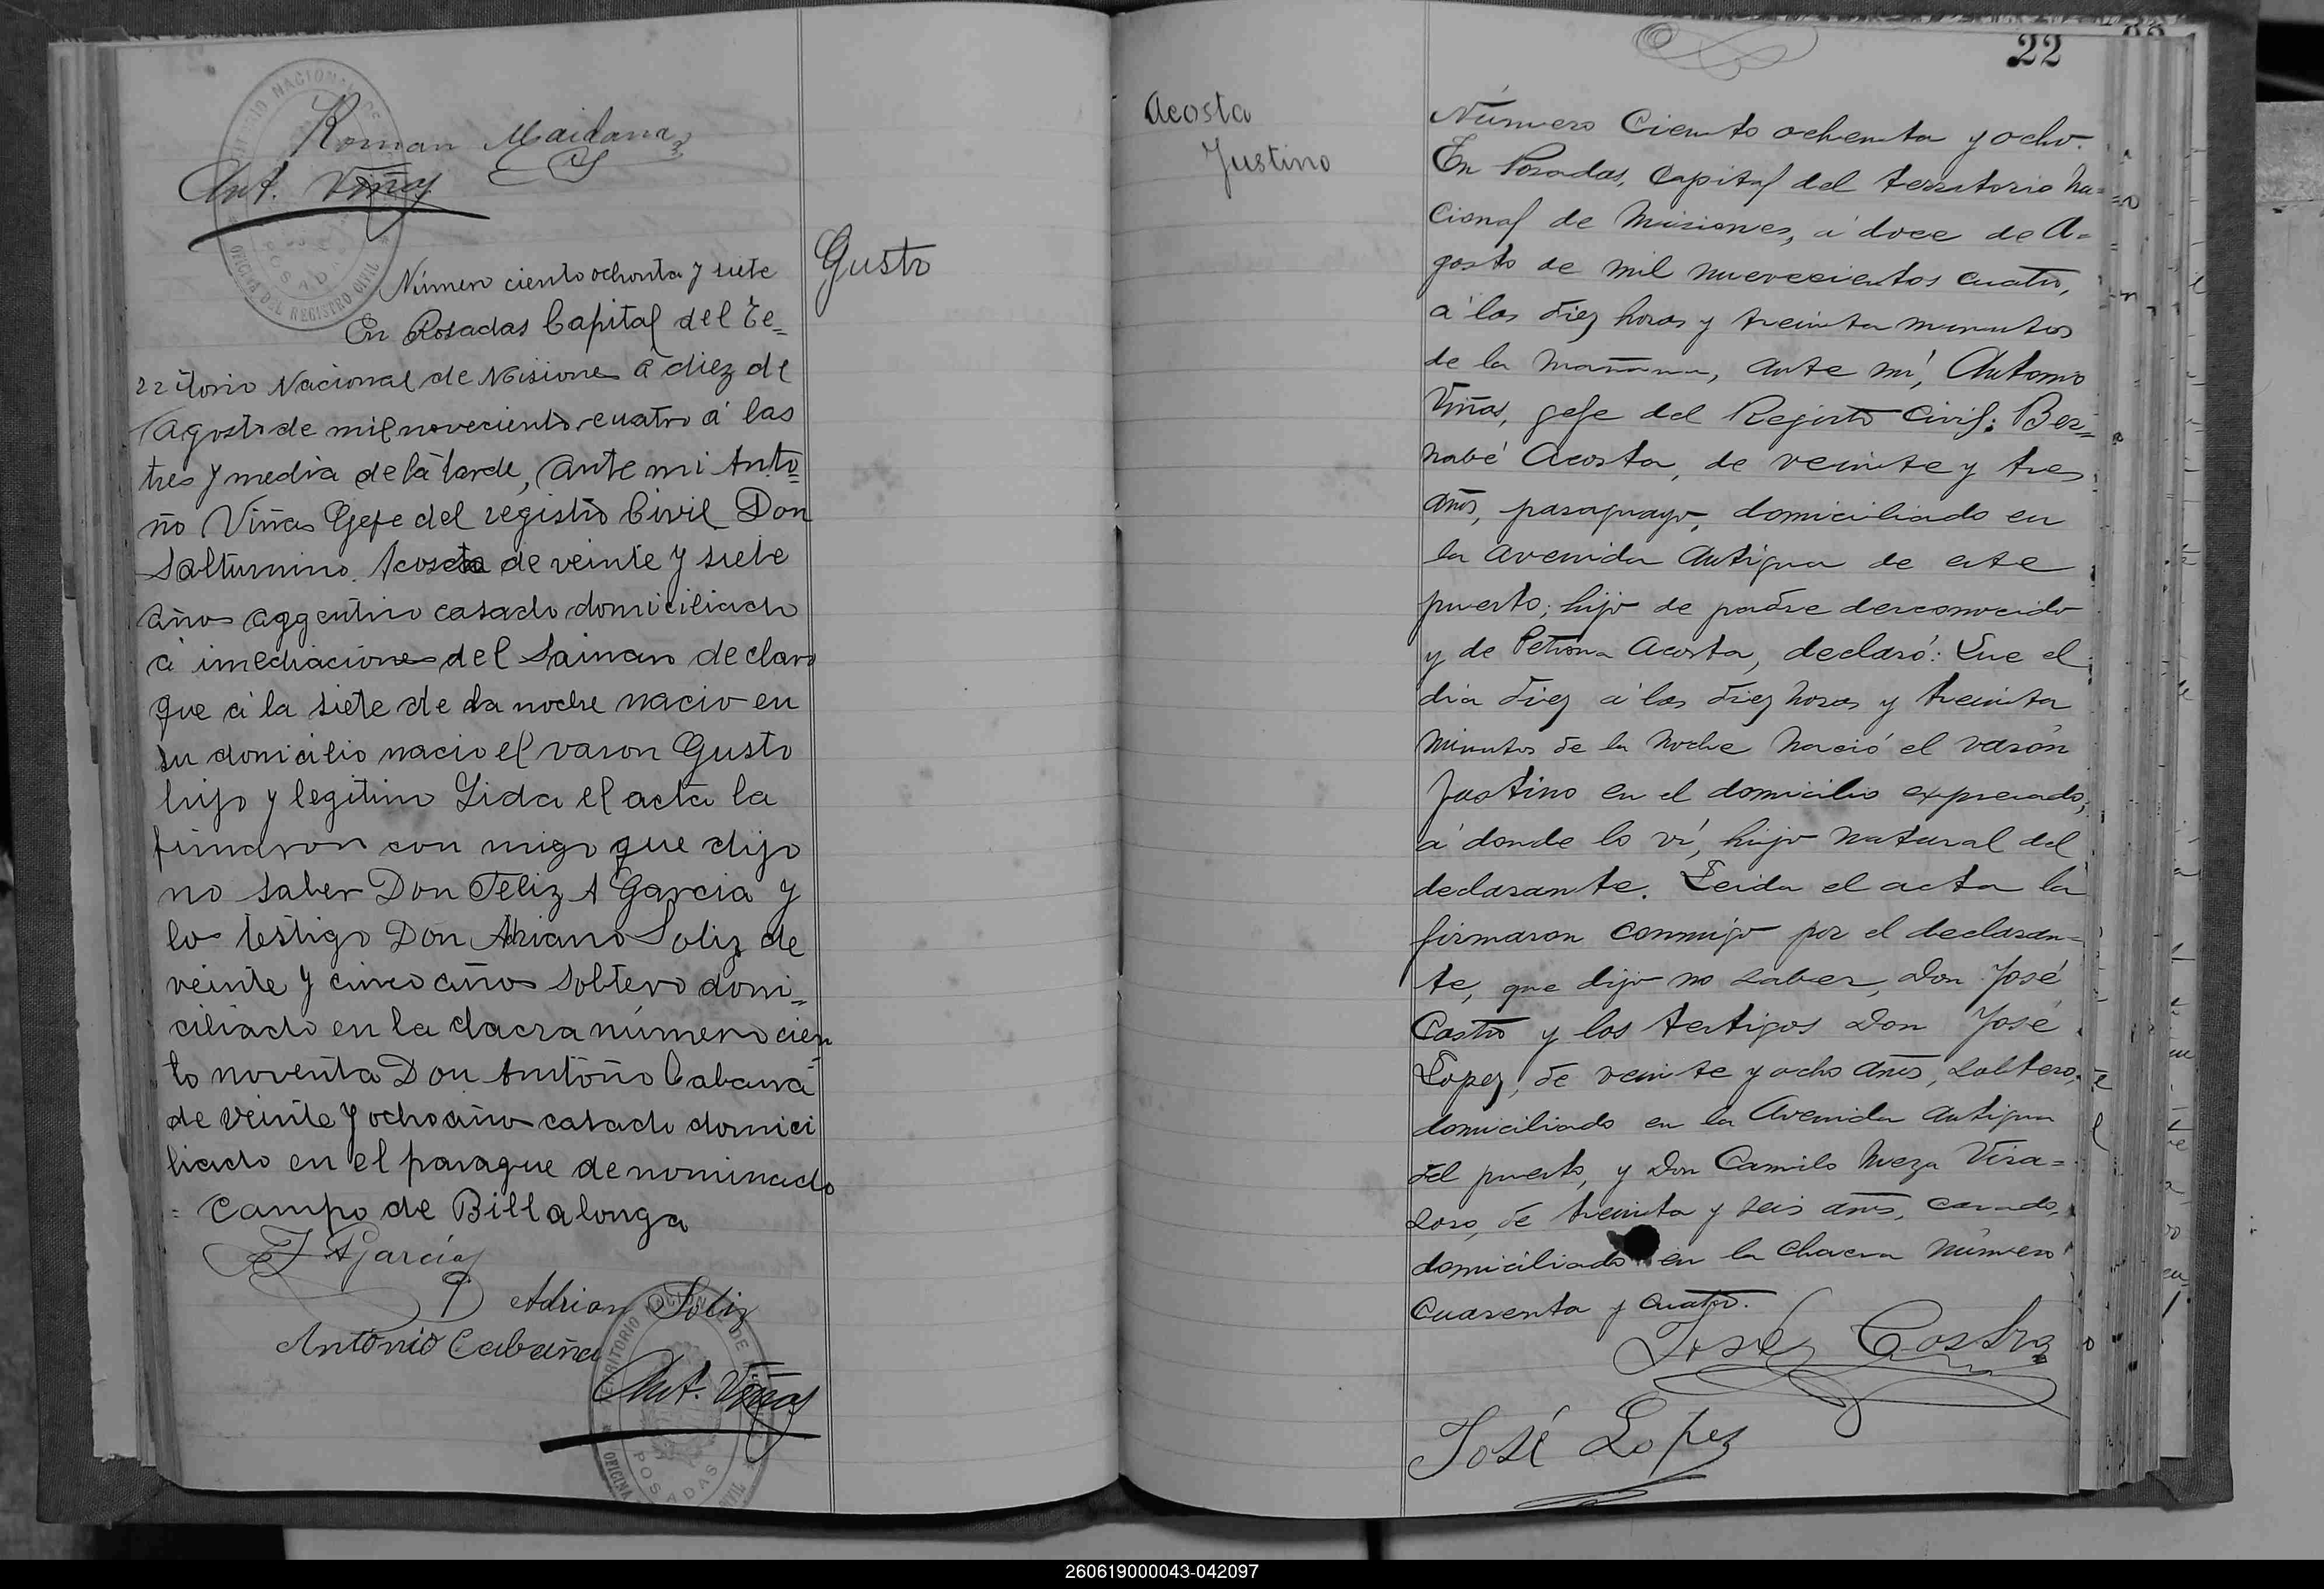 Roman Maidana
Ant. Viñas
Gusto
Número ciento ochenta y siete
En Posadas Capital del Te=
rritorio Nacional de Misiones á diez de
Agosto de mil noveciento cuatro á las
tres y media de la tarde, ante mi Anto=
ño Viñas Gefe del registro Civil Don
Salturnino Acosta de veinte y siete
años aggentino casado domiciliado
á imediaciones del Saiman declaro
que á la siete de la noche nacio en
su domicilio nacio el varon Gusto
hijo y legitimo Lida el acta la
fimaron con migo que dijo
no saber Don Feliz A Garcia y
lo testigo Don Adriano Soliz de
veinte y cinco años soltero domi=
ciliado en la chacra número cien
to noventa Don Antoño Cabaña
de veinte y ocho año casado domici
liado en el paraque denominado
= Campo de Billalonga
F A Garcia
Adrian Soliz
Antonio Cabaña
Ant. Viñas
TERRITORIO NACIONAL DE
OFICINA DEL REGISTRO CIVIL
POSADAS
22
Acosta
Justino
Número Ciento ochenta y ocho.
En Posadas, Capital del territorio na=
cional de Misiones, á doce de A=
gosto de mil nuevecientos cuatro,
á las diez horas y treinta minutos
de la mañana, ante mí, Antonio
Viñas, gefe del Rejistro Civil: Ber=
nabé Acosta, de veinte y tres
años, paraguayo, domiciliado en
la avenida antigua de este
puerto; hijo de padre desconocido
y de Petrona Acosta, declaró: Que el
dia diez á las diez horas y treinta
minutos de la noche nació el varón
Justino en el domicilio expresado;
á donde lo ví, hijo natural del
declarante. Leida el acta la
firmaron conmigo por el declaran=
te, que dijo no saber, Don José
Castro y los testigos Don José
Lopez, de veinte y ocho años, soltero,
domiciliado en la Avenida antigua
del puerto, y Don Camilo Meza Vira=
soro, de treinta y seis años, casado,
domiciliado en la chacra número
cuarenta y cuatro.
José Castro
José Lopez
260619000043-042097